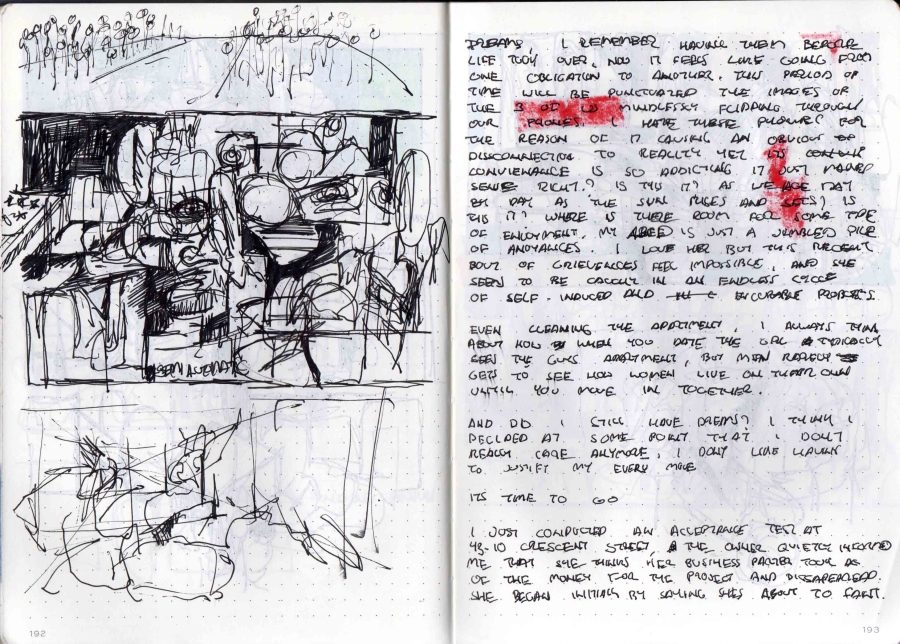 SEMI AUTOMATIC
192
DREAMS, I REMEMBER HAVING THEM BEFORE
LIFE TOOK OVER, NOW IT FEELS LIKE GOING FROM
ONE OBLIGATION TO ANOTHER. THIS PERIOD OF
TIME WILL BE PUNCTUATED THE IMAGES OF
THE MINDLESSLY FLIPPING THROUGH
OUR PHONES. I HAVE THESE PHONES FOR
THE REASON OF IT CAUSING AN OBVIOUS
DISCONNECTION TO REALITY YET ITS
CONVIENANCE IS SO ADDICTING IT JUST MAKES
SENSE RIGHT? IS THIS IT? AS WE AGE DAY
BY DAY AS THE SUN RISES AND SETS) IS
THIS IT? WHERE IS THERE ROOM FOR SOME TYPE
OF ENJOYMENT. MY IS JUST A JUMBLED PILE
OF ANOYANCES. I LOVE HER BUT THIS RECENT
BOUT OF GRIEVENCES FEEL IMPOSSIBLE, AND SHE
SEEMS TO BE CAUGHT IN AN ENDLESS CYCLE
OF SELF-INDUCED AND PROBLEMS.
EVEN CLEANING THE APARTMENT, I ALWAYS THINK
ABOUT HOW WHEN YOU DATE THE GIRL TYPICALLY
SEES THE GUYS APARTMENT, BUT MEN RARELY
GETS TO SEE HOW WOMEN LIVE ON THEIR OWN
UNTIL YOU MOVE IN TOGETHER.
AND DO I STILL HAVE DREAMS? I THINK I
DECLARED AT SOME POINT THAT I DON'T
REALLY CARE ANYMORE, I DONT LIKE HAVING
TO JUSTIFY MY EVERY MOVE
ITS TIME TO GO
I JUST CONDUCTED AN ACCEPTANCE TEST AT
43-10 CRESCENT STREET, THE OWNER QUIETLY INFORMED
ME THAT SHE THINKS HER BUSINESS PARTNER TOOK ALL
OF THE MONEY FOR THE PROJECT AND DISSAPEARED.
SHE BEGAN INITIALLY BY SAYING SHES ABOUT TO FAINT.
193